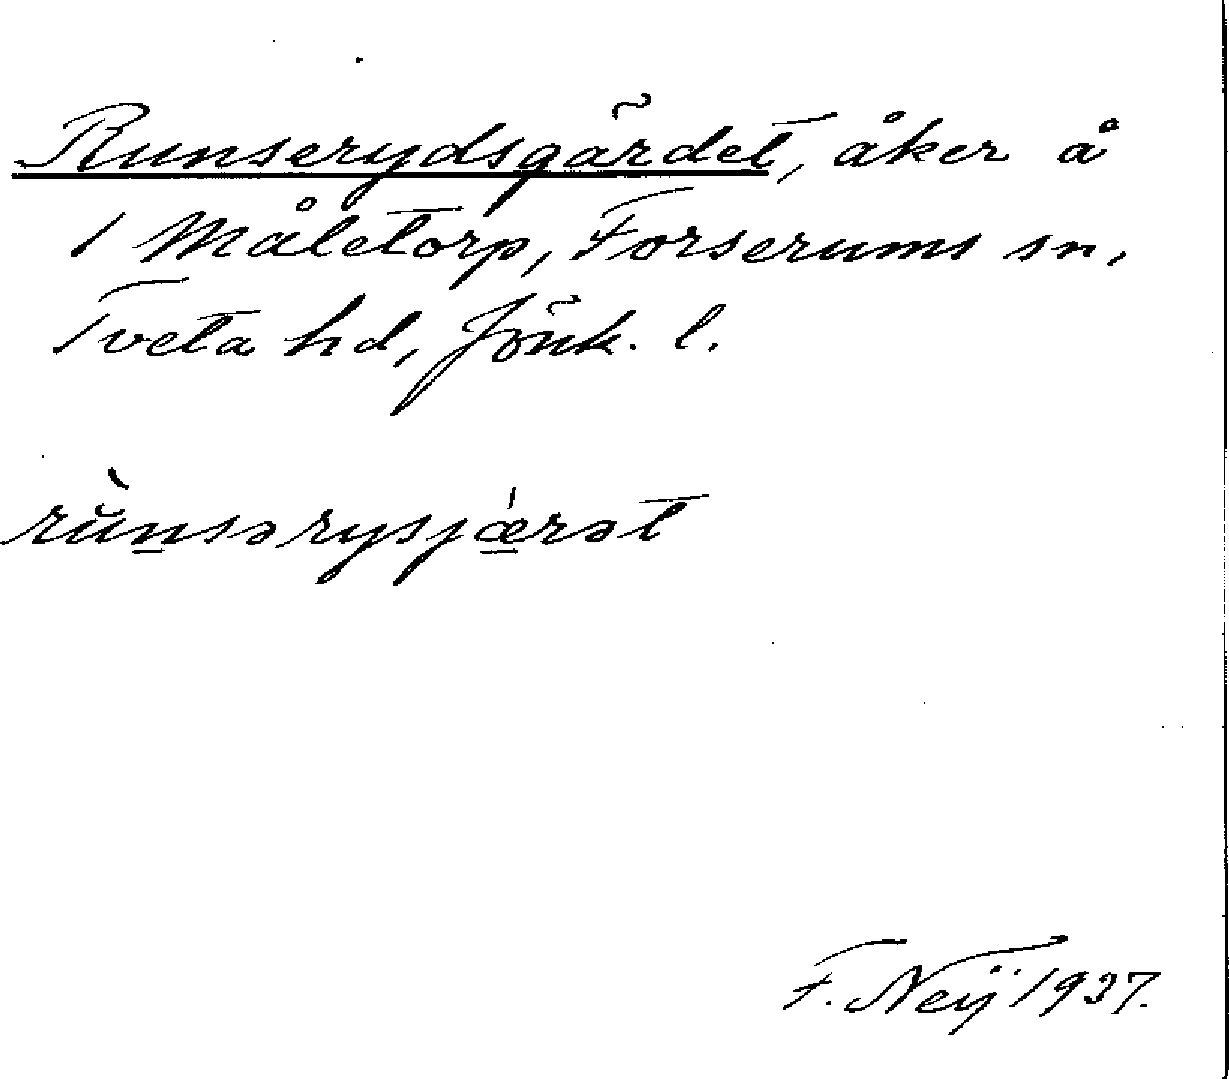 Runserydsgärdet, åker å
1 Måletorp, Forserums sn,
Tveta hd, Jönk. l.
rùnsərysjǽrət
F. Neÿ 1937.